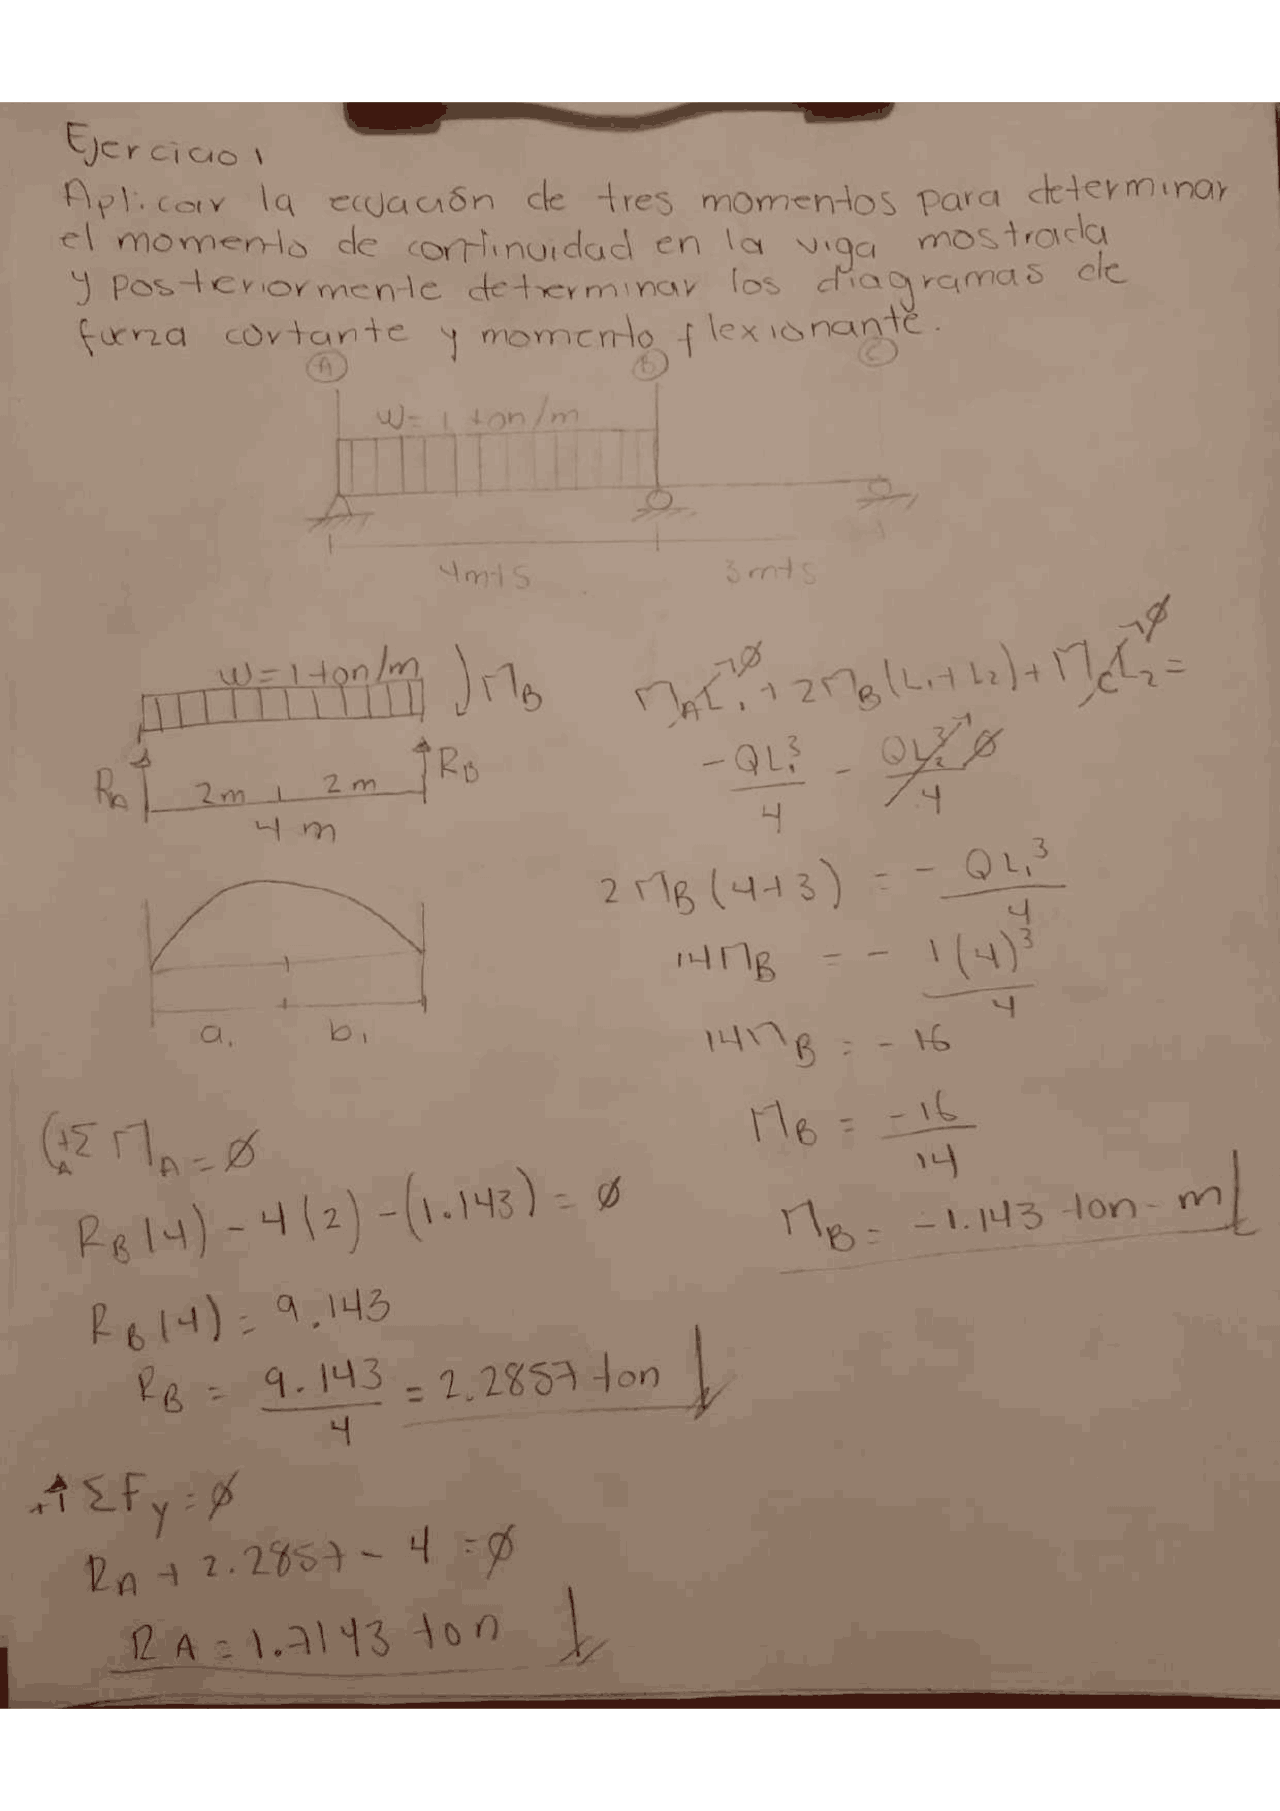 Ejercicio 1
Aplicar la ecuación de tres momentos para determinar
el momento de continuidad en la viga mostrada
y posteriormente determinar los diagramas de
fuerza cortante y momento flexionante.
A B C
W= 1 ton/m
4mts 3mts
W=1 ton/m MB
RA RB
2m 2m
4 m
a1 b1
MAL1→∅ + 2MB(L1+L2) + MCL2→∅ =
-QL1³/4 - QL2³/4→∅
2MB(4+3) = - QL1³/4
14MB = - 1(4)³/4
14MB = - 16
MB = -16/14
MB = -1.143 ton-m
+ΣMA=∅
A
RB(4) - 4(2) - (1.143) = ∅
RB(4) = 9.143
RB = 9.143/4 = 2.2857 ton
+↑ΣFy=∅
RA + 2.2857 - 4 = ∅
RA = 1.7143 ton